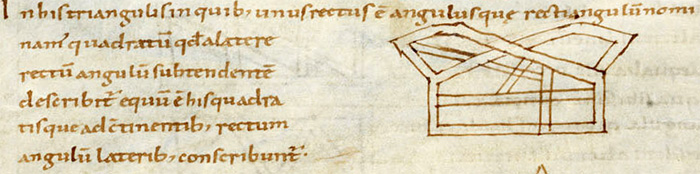 In his triangulis in quib; unus rectus ē angulus que rectiangulū nomi
nam; quadratū qđ a latere
rectū angulū subtendente
describit̄ equū ē his quadra
tis que ad c̄tinentib; rectum
angulū laterib; conscribunt̄.